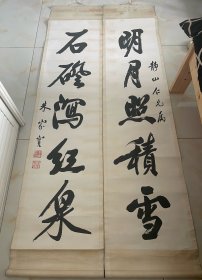 静山仁兄属
明月照積雪
石磴瀉紅泉
朱家寶